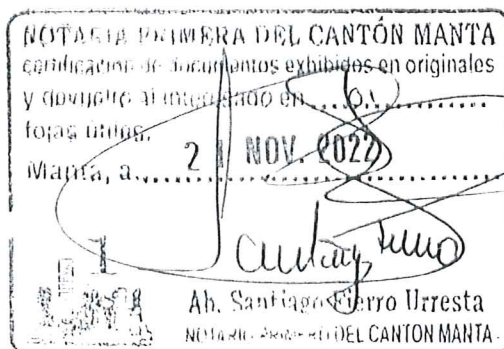 NOTARIA PRIMERA DEL CANTÓN MANTA
certificación de documentos exhibidos en originales
y devuelto al interesado en.....01.....
fojas útiles.
Manta, a..... 21 NOV. 2022
Ab. Santiago Fierro Urresta
NOTARIO PRIMERO DEL CANTON MANTA